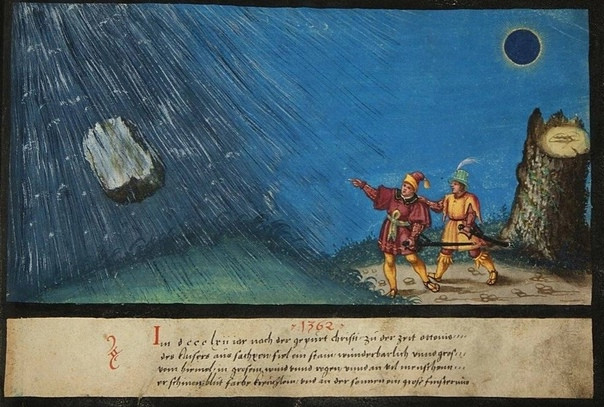 1362
Im d cccc lxii iar nach der gepurt christi zu der zeit ottonis
des kaisers aus sachsen fiel ein stain wunderbarlich vnnd gros
vom himel, in grosem wind vnnd regen vnnd an vil menschenn
erschinen blut farbe kreutzlen, vnd an der sonnen ein grose finsternus